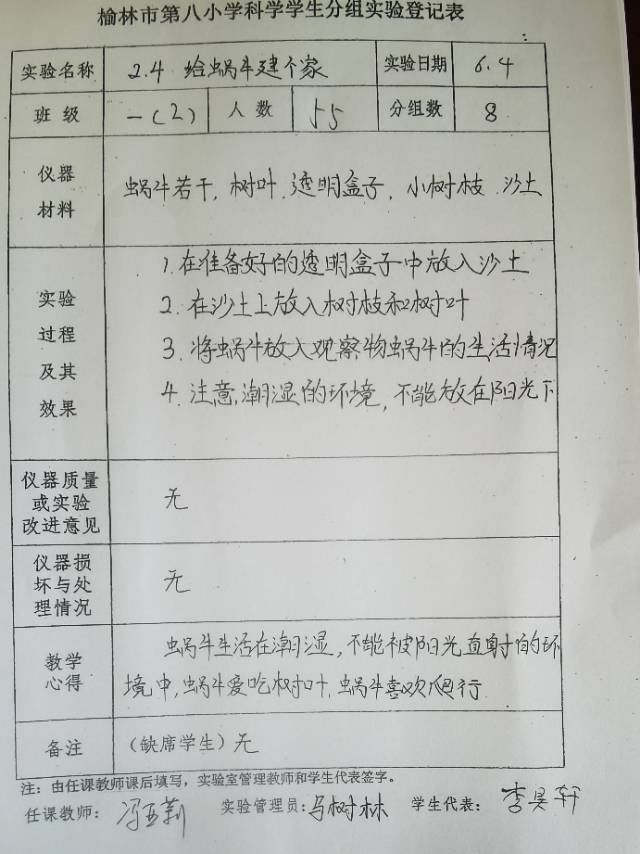 榆林市第八小学科学学生分组实验登记表
实验名称 2.4 给蜗牛建个家 实验日期 6.4
班级 一(2) 人数 55 分组数 8
仪器
材料
蜗牛若干, 树叶. 透明盒子, 小树枝. 沙土
实验
过程
及其
效果
1. 在准备好的透明盒子中放入沙土
2. 在沙土上放入树枝和树叶
3. 将蜗牛放入观察物蜗牛的生活情况
4. 注意潮湿的环境, 不能放在阳光下
仪器质量
或实验
改进意见
无
仪器损
坏与处
理情况
无
教学
心得
蜗牛生活在潮湿, 不能被阳光直射的环
境中, 蜗牛爱吃树叶, 蜗牛喜欢爬行.
备注 (缺席学生) 无
注: 由任课教师课后填写, 实验室管理教师和学生代表签字。
任课教师: 冯亚莉 实验管理员: 马树林 学生代表: 李昊轩